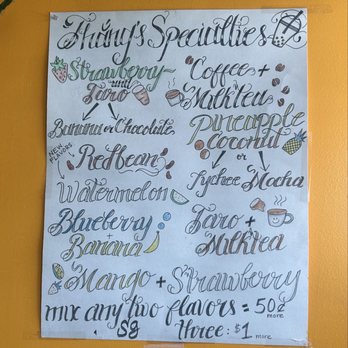 Thúny's Specialties
Strawberry
and
Taro
Banana or Chocolate
NEW FLAVORS
Redbean
Watermelon
Blueberry
+
Banana
Coffee +
Milktea
Pineapple
coconut
or
Lychee Mocha
Taro +
Milktea
Mango + Strawberry
mix any two flavors = 50¢
more
three: $1 more